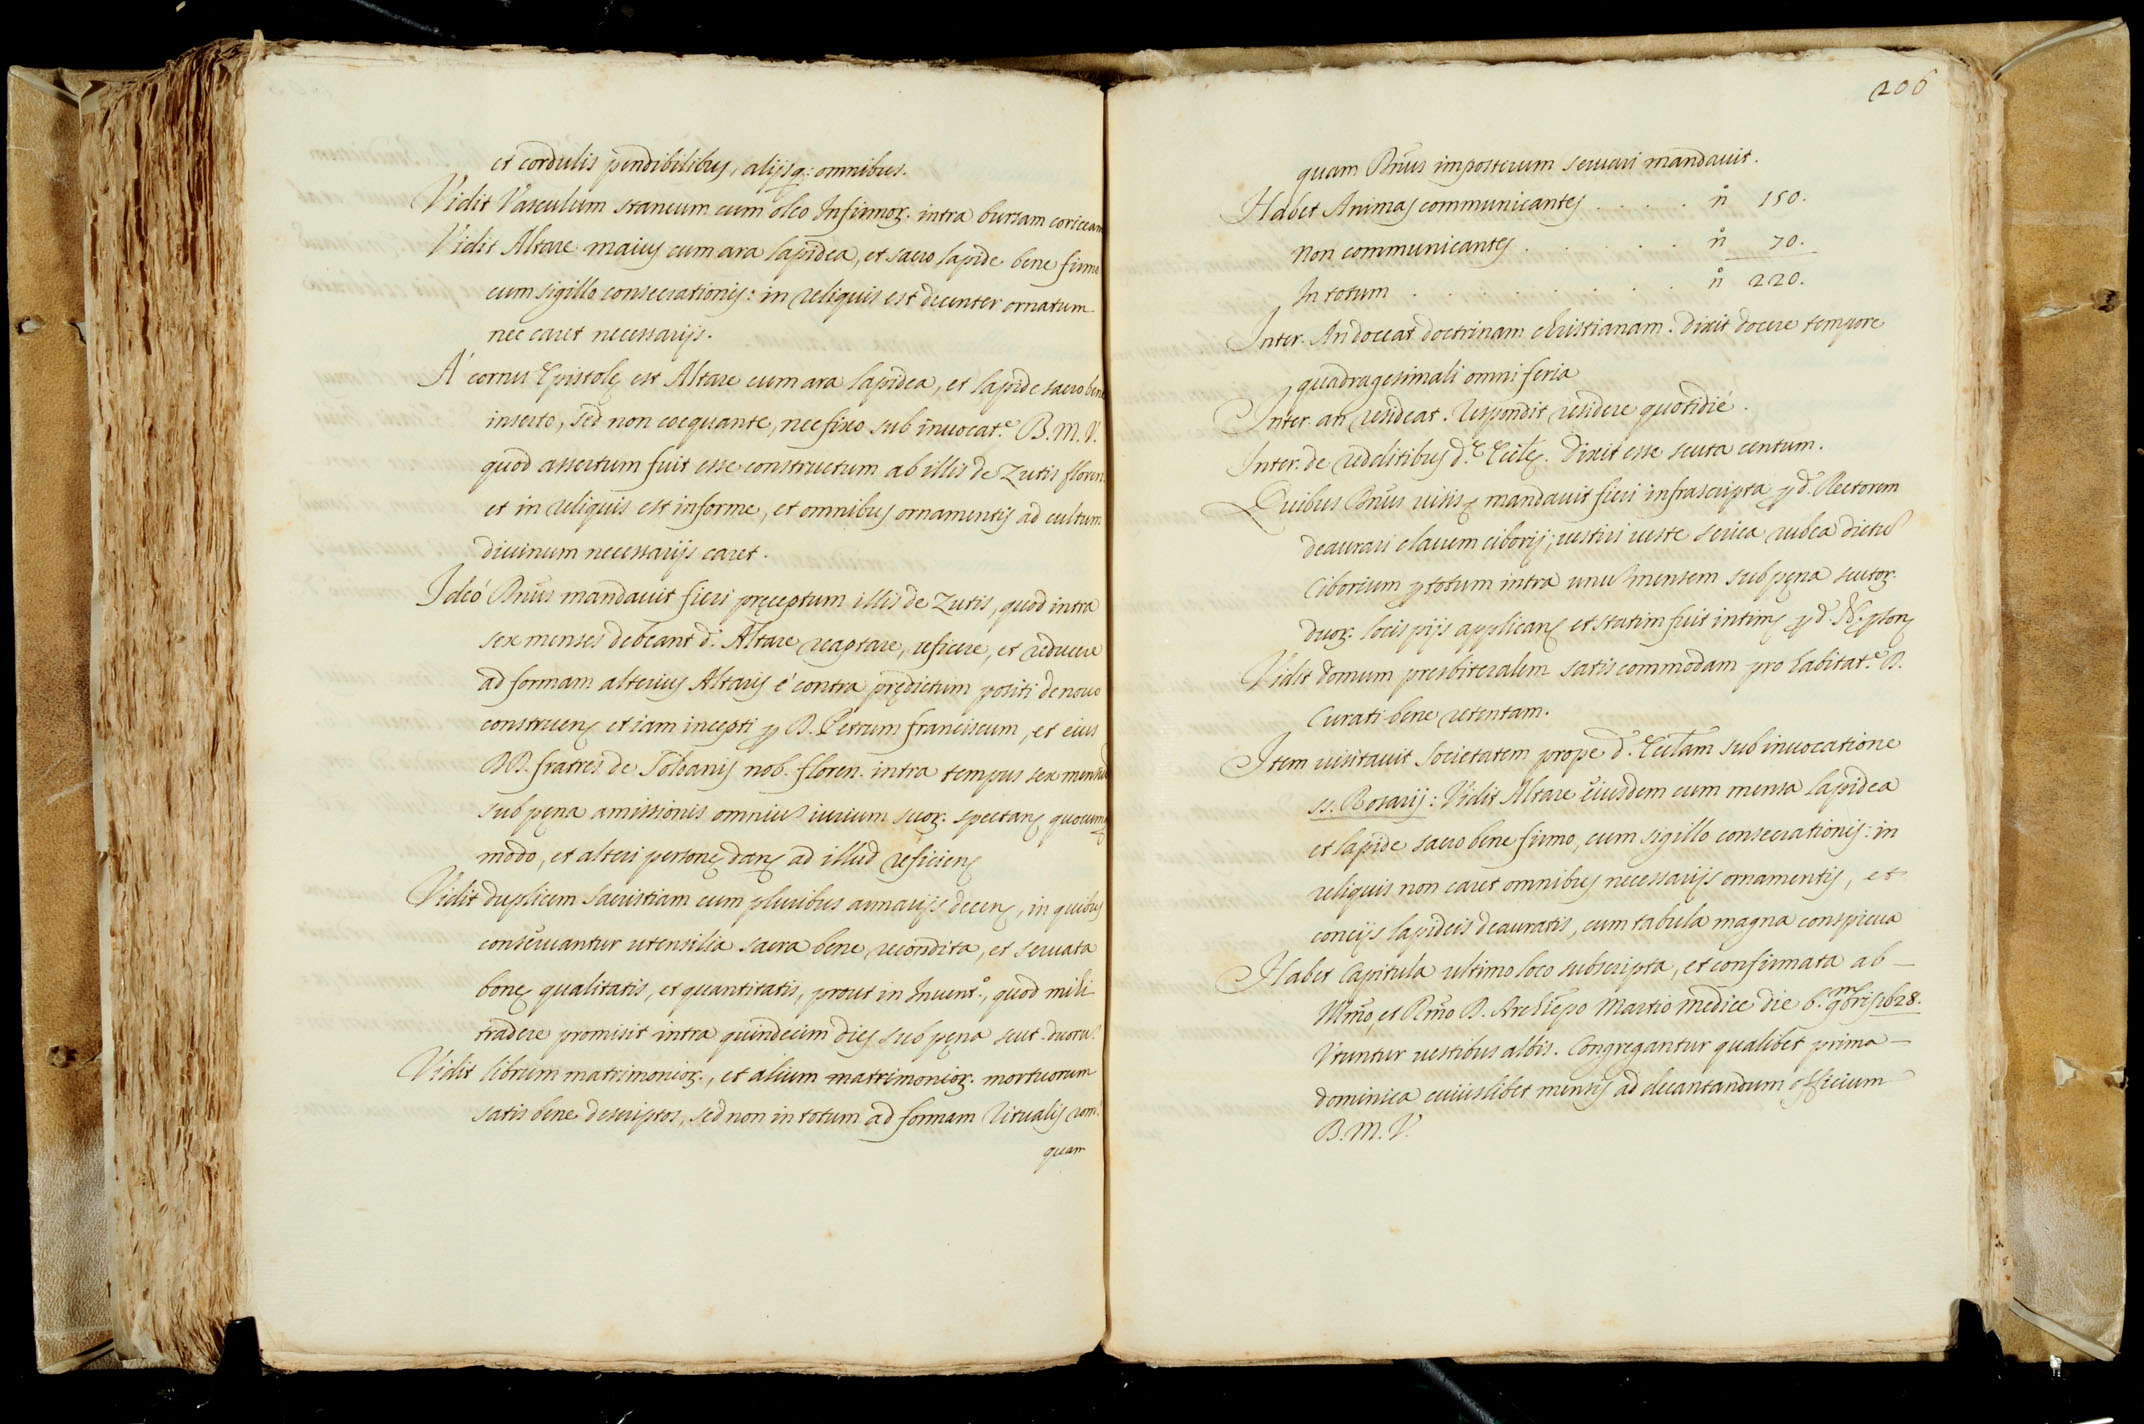 et cordulis pendibilibus, alijsq: omnibus.
Vidit Vasculum staneum cum oleo Infirmoꝝ. intra bursam coriceam
Vidit Altare maius cum ara lapidea, et sacro lapide bene firmo
cum sigillo consecrationis: in reliquis est decenter ornatum
nec caret necessarijs.
A' cornu Epistolę est Altare cum ara lapidea, et lapide sacro bene
inserto, sed non coequante, nec fixo sub inuocat.e B.M.V.
quod assertum fuit esse constructum ab illis de Zutis floren.
et in reliquis est informe, et omnibus ornamentis ad cultum
diuinum necessarijs caret.
Ideó Dn̄us mandauit fieri pręceptum illis de Zutis, quod intra
sex menses debeant d.̃ Altare reaptare, reficere, et reducere
ad formam alterius Altaris é contra prędictum positi de nouo
construenꝭ et iam incepti ꝑ D. Petrum franciscum, et eius
DD. fratres de nob. floren. intra tempus sex mensiū
sub pęna amissionis omniū iurium suoꝝ. spectanꝭ quocumqꝫ
modo, et alteri personę danꝭ ad illud reficienꝭ
Vidit duplicem sacristiam cum pluribus armarijs decenꝭ, in quibus
conseruantur utensilia sacra bene, recondita, et seruata
bonę qualitatis, et quantitatis, prout in Inuent.o, quod mihi
tradere promisit intra quindecim dies sub pęna scut. duoru.
Vidit librum matrimonioꝝ., et alium matrimonioꝝ. mortuorum
satis bene descriptos, sed non in totum ad formam Ritualis rom.
quam
206
quam Dn̄us imposterum seruari mandauit.
Habet Animas communicantes . . . . n.̊ 150.
Non communicantes . . . . . . n.̊ 70.
In totum . . . . . . . . . n.̊ 220.
Inter. An doceat doctrinam christianam. Dixit docere tempore
quadragesimali omni feria
Inter. an resideat. Respondit residere quotidié.
Inter. de redditibus d.ę Ecclę. Dixit esse scuta centum.
Quibus Dn̄us uisis mandauit fieri infrascripta ꝑ d. Rectorem
deaurari clauem ciborij; uestiri ueste serica rubea dictū
Ciborium ꝑ totum intra unū mensem sub pęna scutoꝝ.
duoꝝ. locis pijs applicanꝭ et statim fuit intimꝭ ꝑ d.
Vidit domum presbiteralem satis commodam pro habitat.e D.
Curati bene retentam.
Item uisitauit Societatem prope d. Eccl̃am sub inuocatione
ss. Rosarij: Vidit Altare eiusdem cum mensa lapidea
et lapide sacro bene firmo, cum sigillo consecrationis: in
reliquis non caret omnibus necessarijs ornamentis, et
concijs lapideis deauratis, cum tabula magna conspicua
Habet Capitula ultimo loco subscripta, et confirmata ab —
Ill̃mo, et R̃mo D. Archiep̃o Martio Medice die 6. m̃. 9bris 1628.
Vtuntur uestibus albis. Congregantur qualibet prima —
dominica cuiuslibet mensis ad decantandum officium
B.M.V.